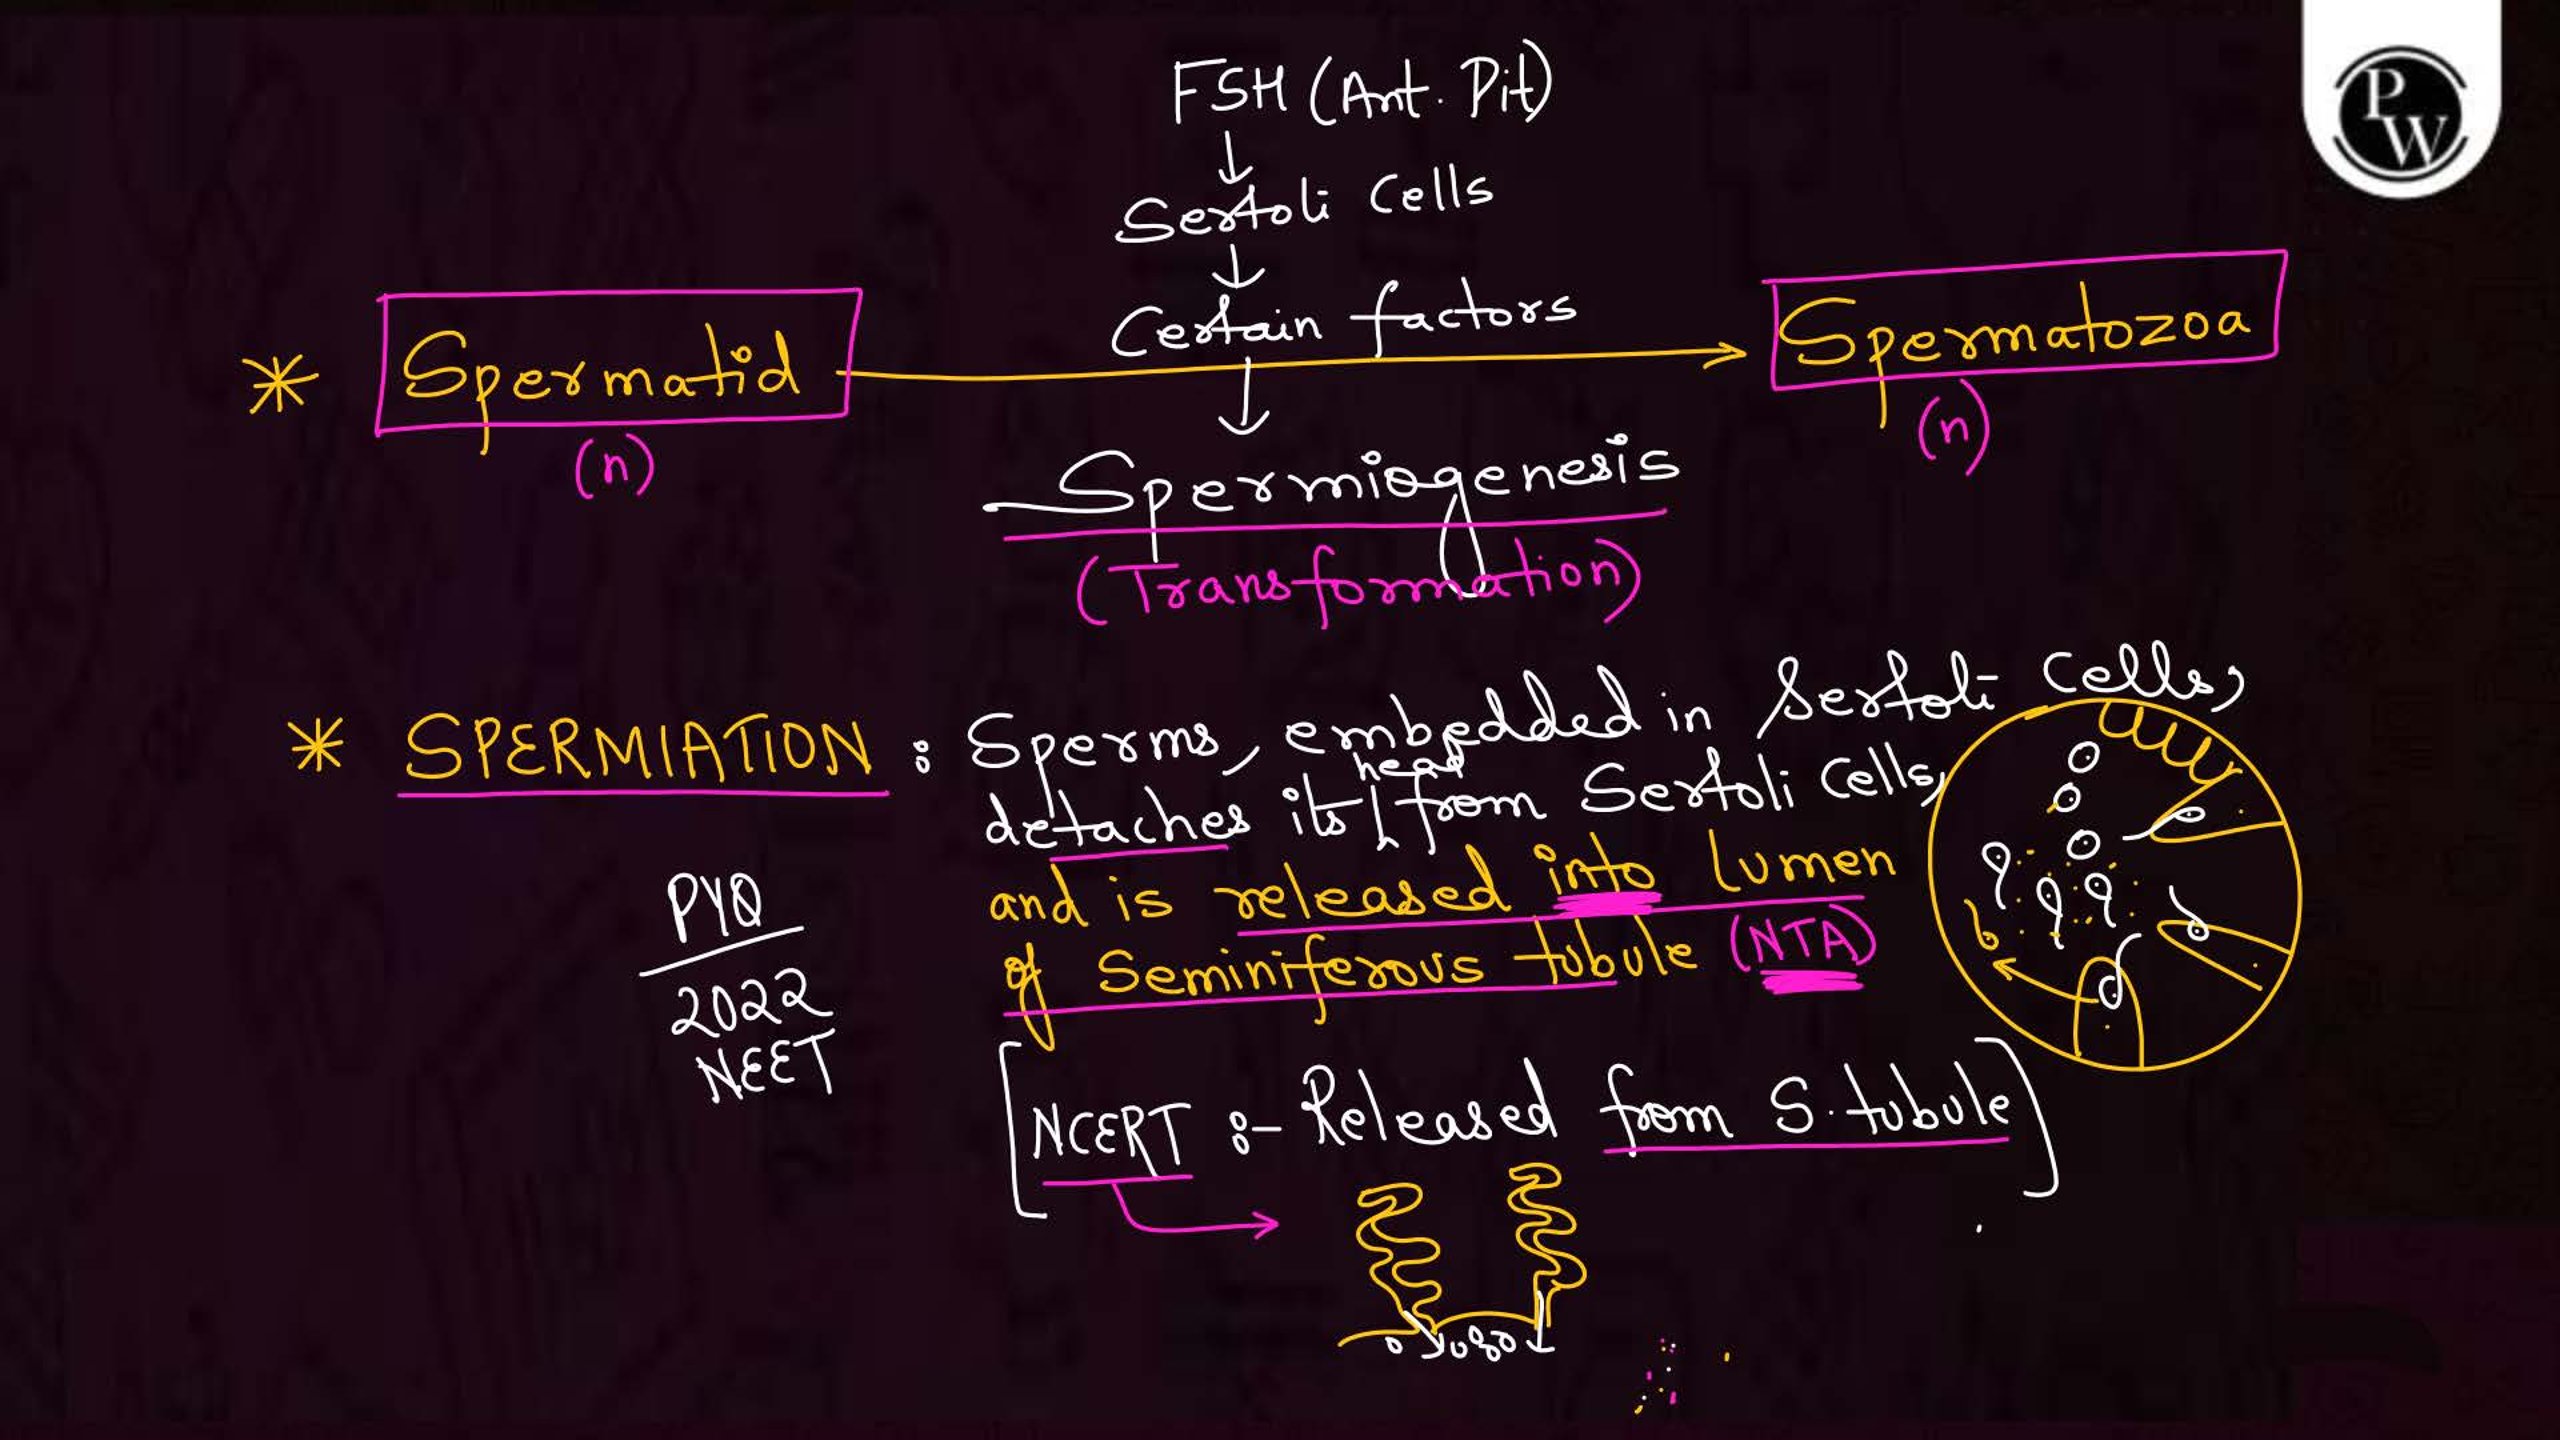 FSH (Ant. Pit)
PW
Sertoli Cells
Certain factors
* Spermatid
Spermatozoa
(n)
(n)
Spermiogenesis
(Transformation)
* SPERMIATION : Sperms, embedded in Sertoli Cells,
head
detaches its from Sertoli Cells,
and is released into lumen
of Seminiferous tubule (NTA)
PYQ
2022
NEET
[NCERT :- Released from S. tubule]